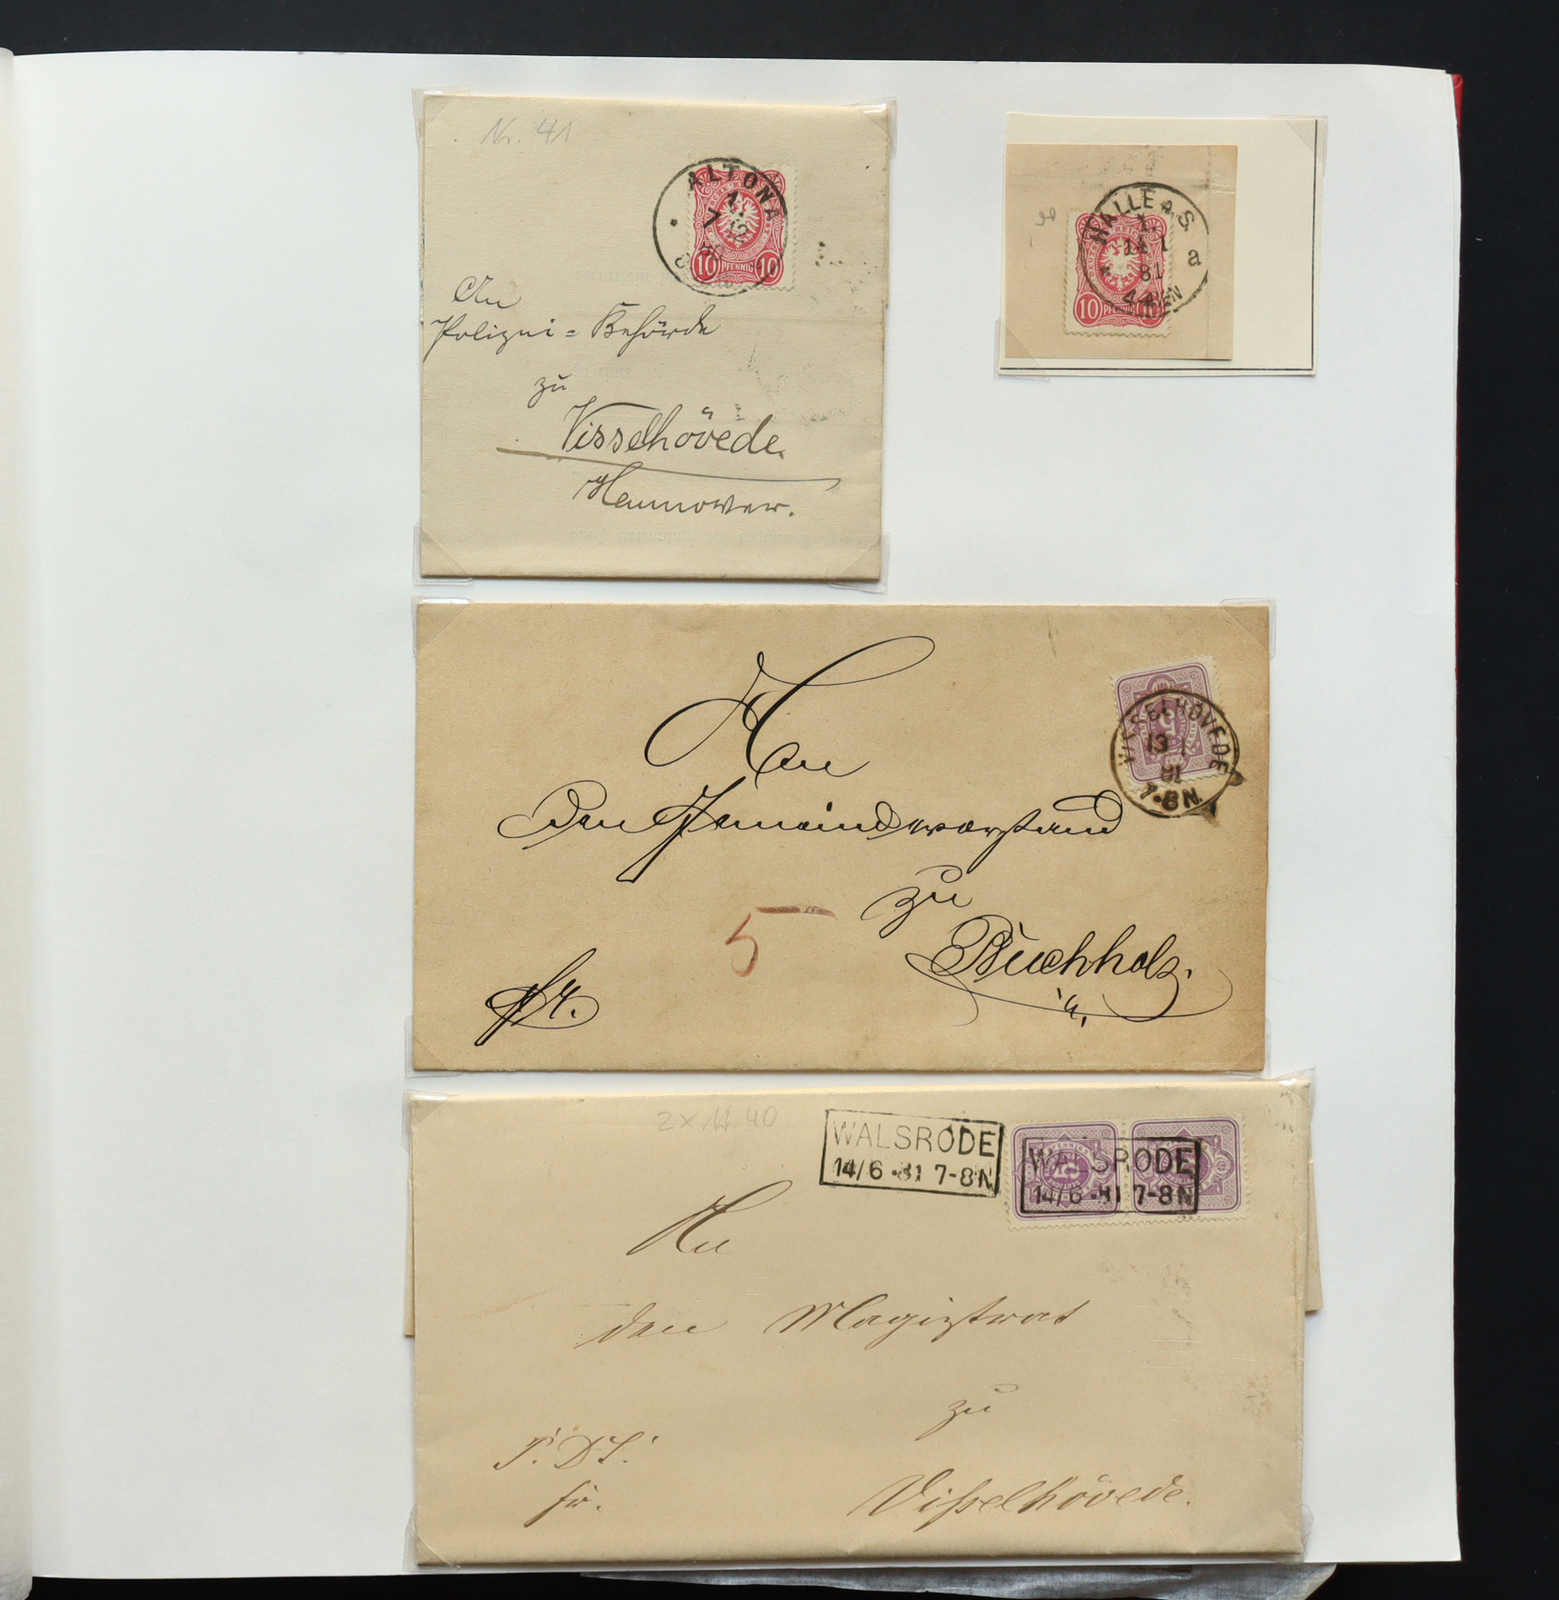 Nr. 41
ALTONA
7 12
10 PFENNIG 10
An
Polizei = Behörde
zu
Visselhövede.
Hannover.
HALLE A.S.
14 1
81
a
10 PFENNIG
An
den Gemeindevorstand
zu
Buchholz.
5
fr.
VISSELHÖVEDE
13 1
81
7-8N.
2x 40
WALSRODE
14/6 81 7-8N
WALSRODE
14/6 81 7-8N
An
den Magistrat
zu
Visselhövede.